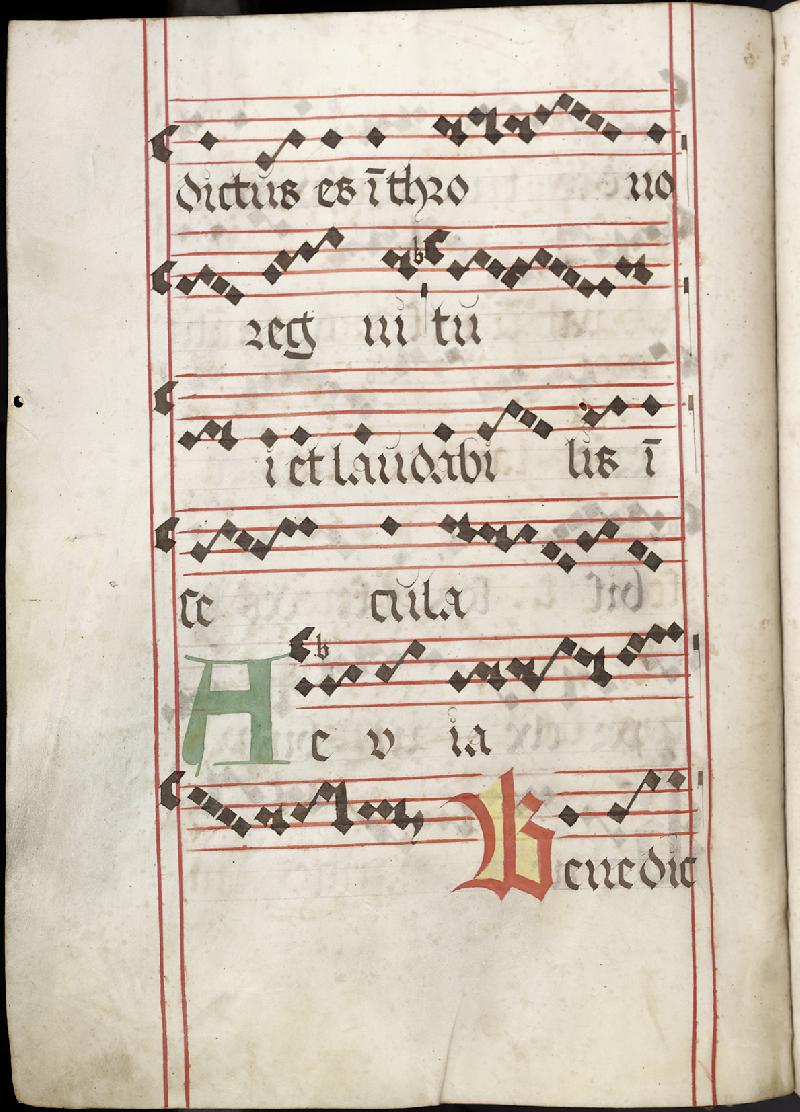 dictus es ī thro no
reg ni tu
i et laudabi lis ī
se cula
A e v ia
Benedic